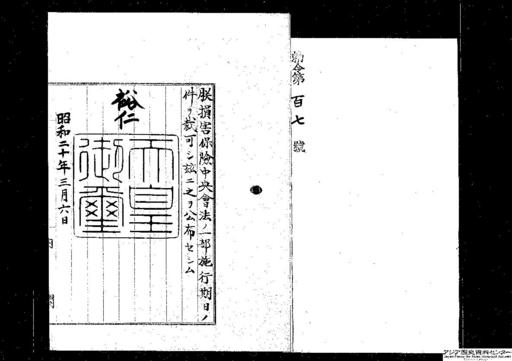 勅令第百七號
朕損害保險中央會法ノ一部施行期日ノ
件ヲ裁可シ茲ニ之ヲ公布セシム
裕仁
天皇
御璽
昭和二十年三月六日
内閣
アジア歴史資料センター